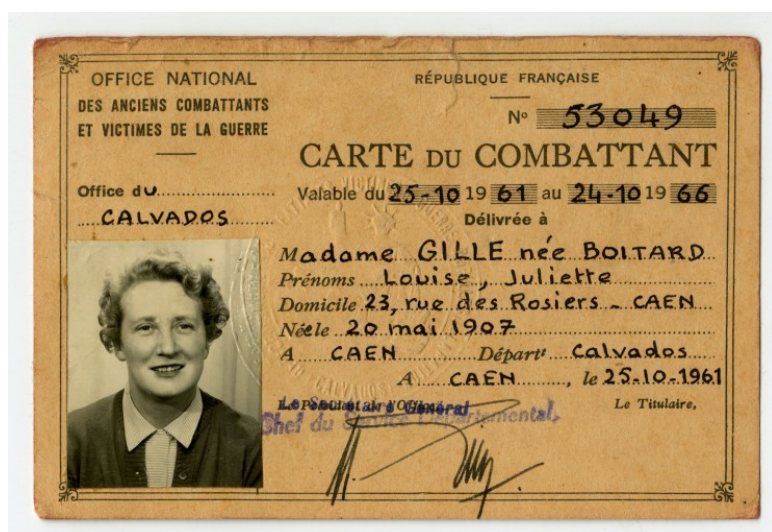 OFFICE NATIONAL
DES ANCIENS COMBATTANTS
ET VICTIMES DE LA GUERRE
Office du
CALVADOS
RÉPUBLIQUE FRANÇAISE
Nº 53049
CARTE DU COMBATTANT
Valable du 25-10 19 61 au 24-10 19 66
Délivrée à
Madame GILLE née BOITARD
Prénoms Louise, Juliette
Domicile 23, rue des Rosiers - CAEN
Née le 20 mai 1907
A CAEN Départt Calvados
A CAEN, le 25-10-1961
Le Secrétaire Général
Le Titulaire,
Chef du Service Départemental,